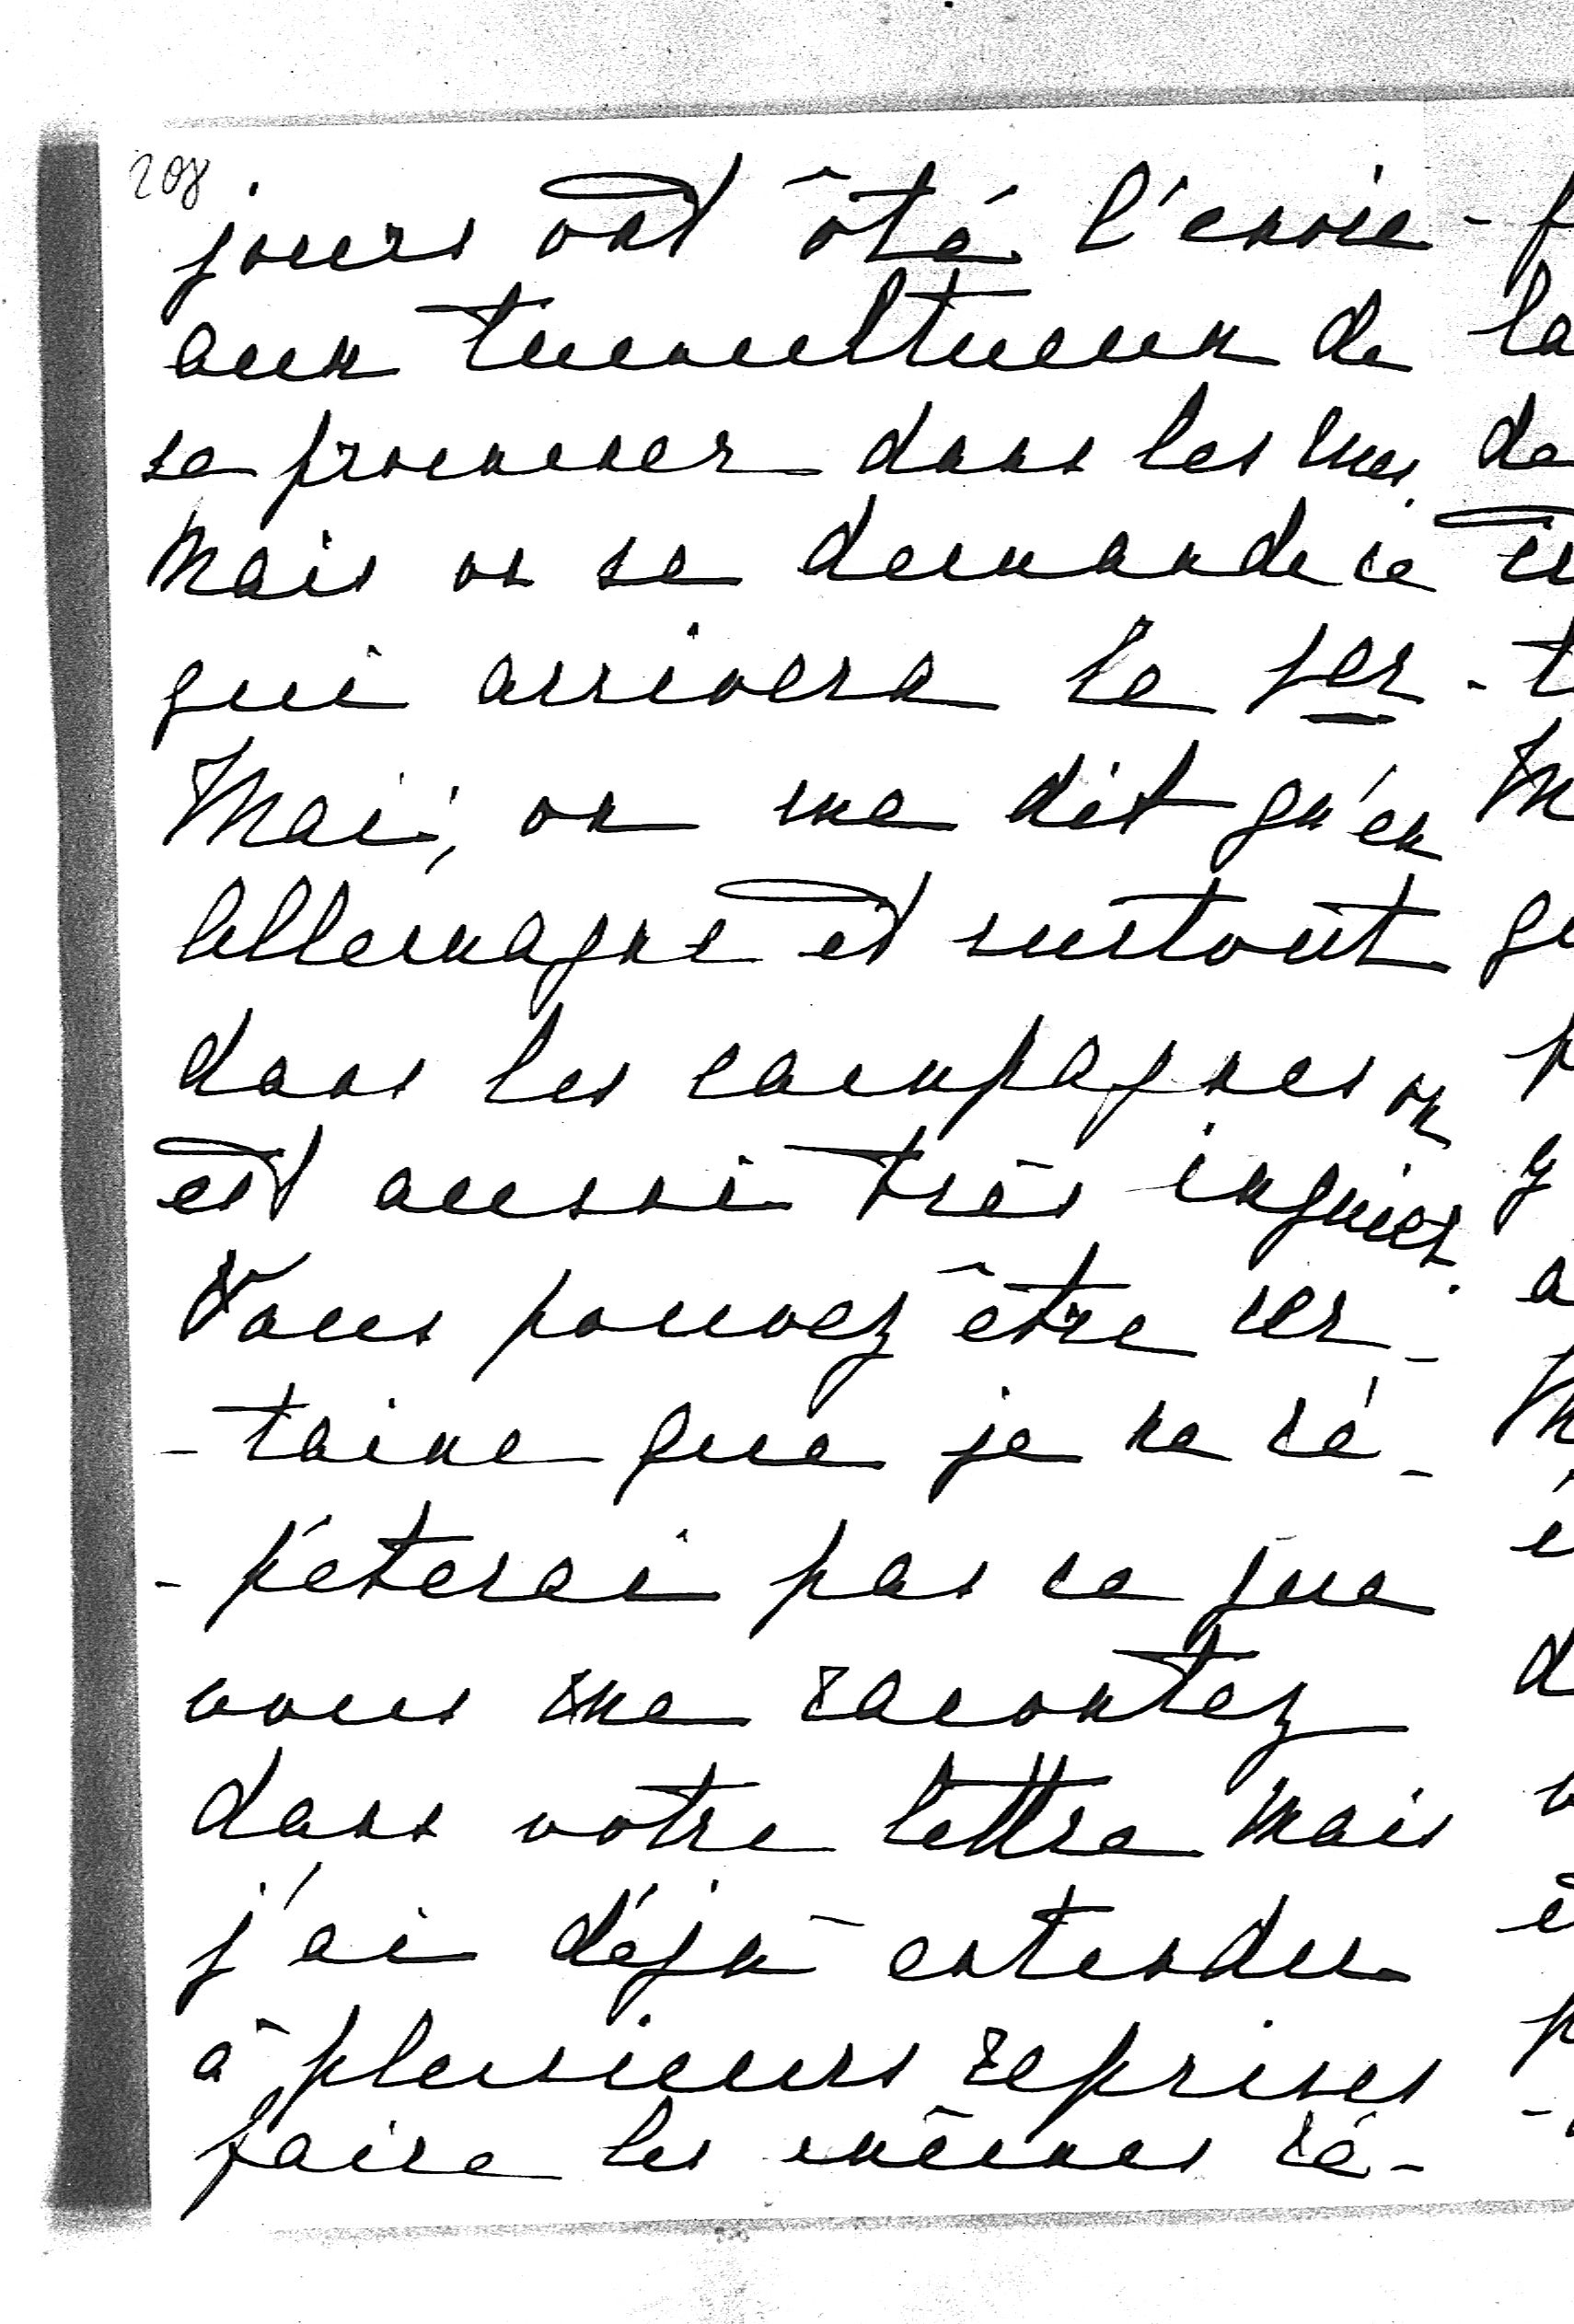 208
jours ont ôté l'envie
aux tumultueux de
se promener dans les rues.
Mais on se demande ce
qui arrivera le 1er
Mai, on me dit qu'en
Allemagne et surtout
dans les campagnes on
est aussi très inquiet.
Vous pouvez être cer-
-taine que je ne ré-
-péterai pas ce que
vous me racontez
dans votre lettre mais
j'ai déjà entendu
à plusieurs reprises
faire les mêmes ré-